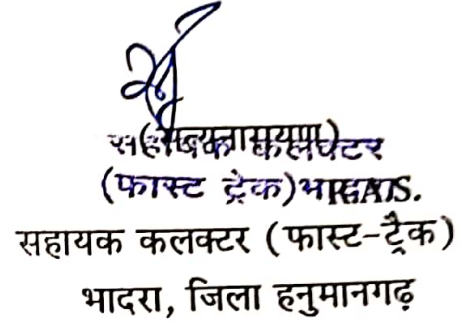 (सत्यनारायण)
सहायक कलक्टर
(फास्ट ट्रेक)भादरा
सहायक कलक्टर (फास्ट-ट्रैक)
भादरा, जिला हनुमानगढ़